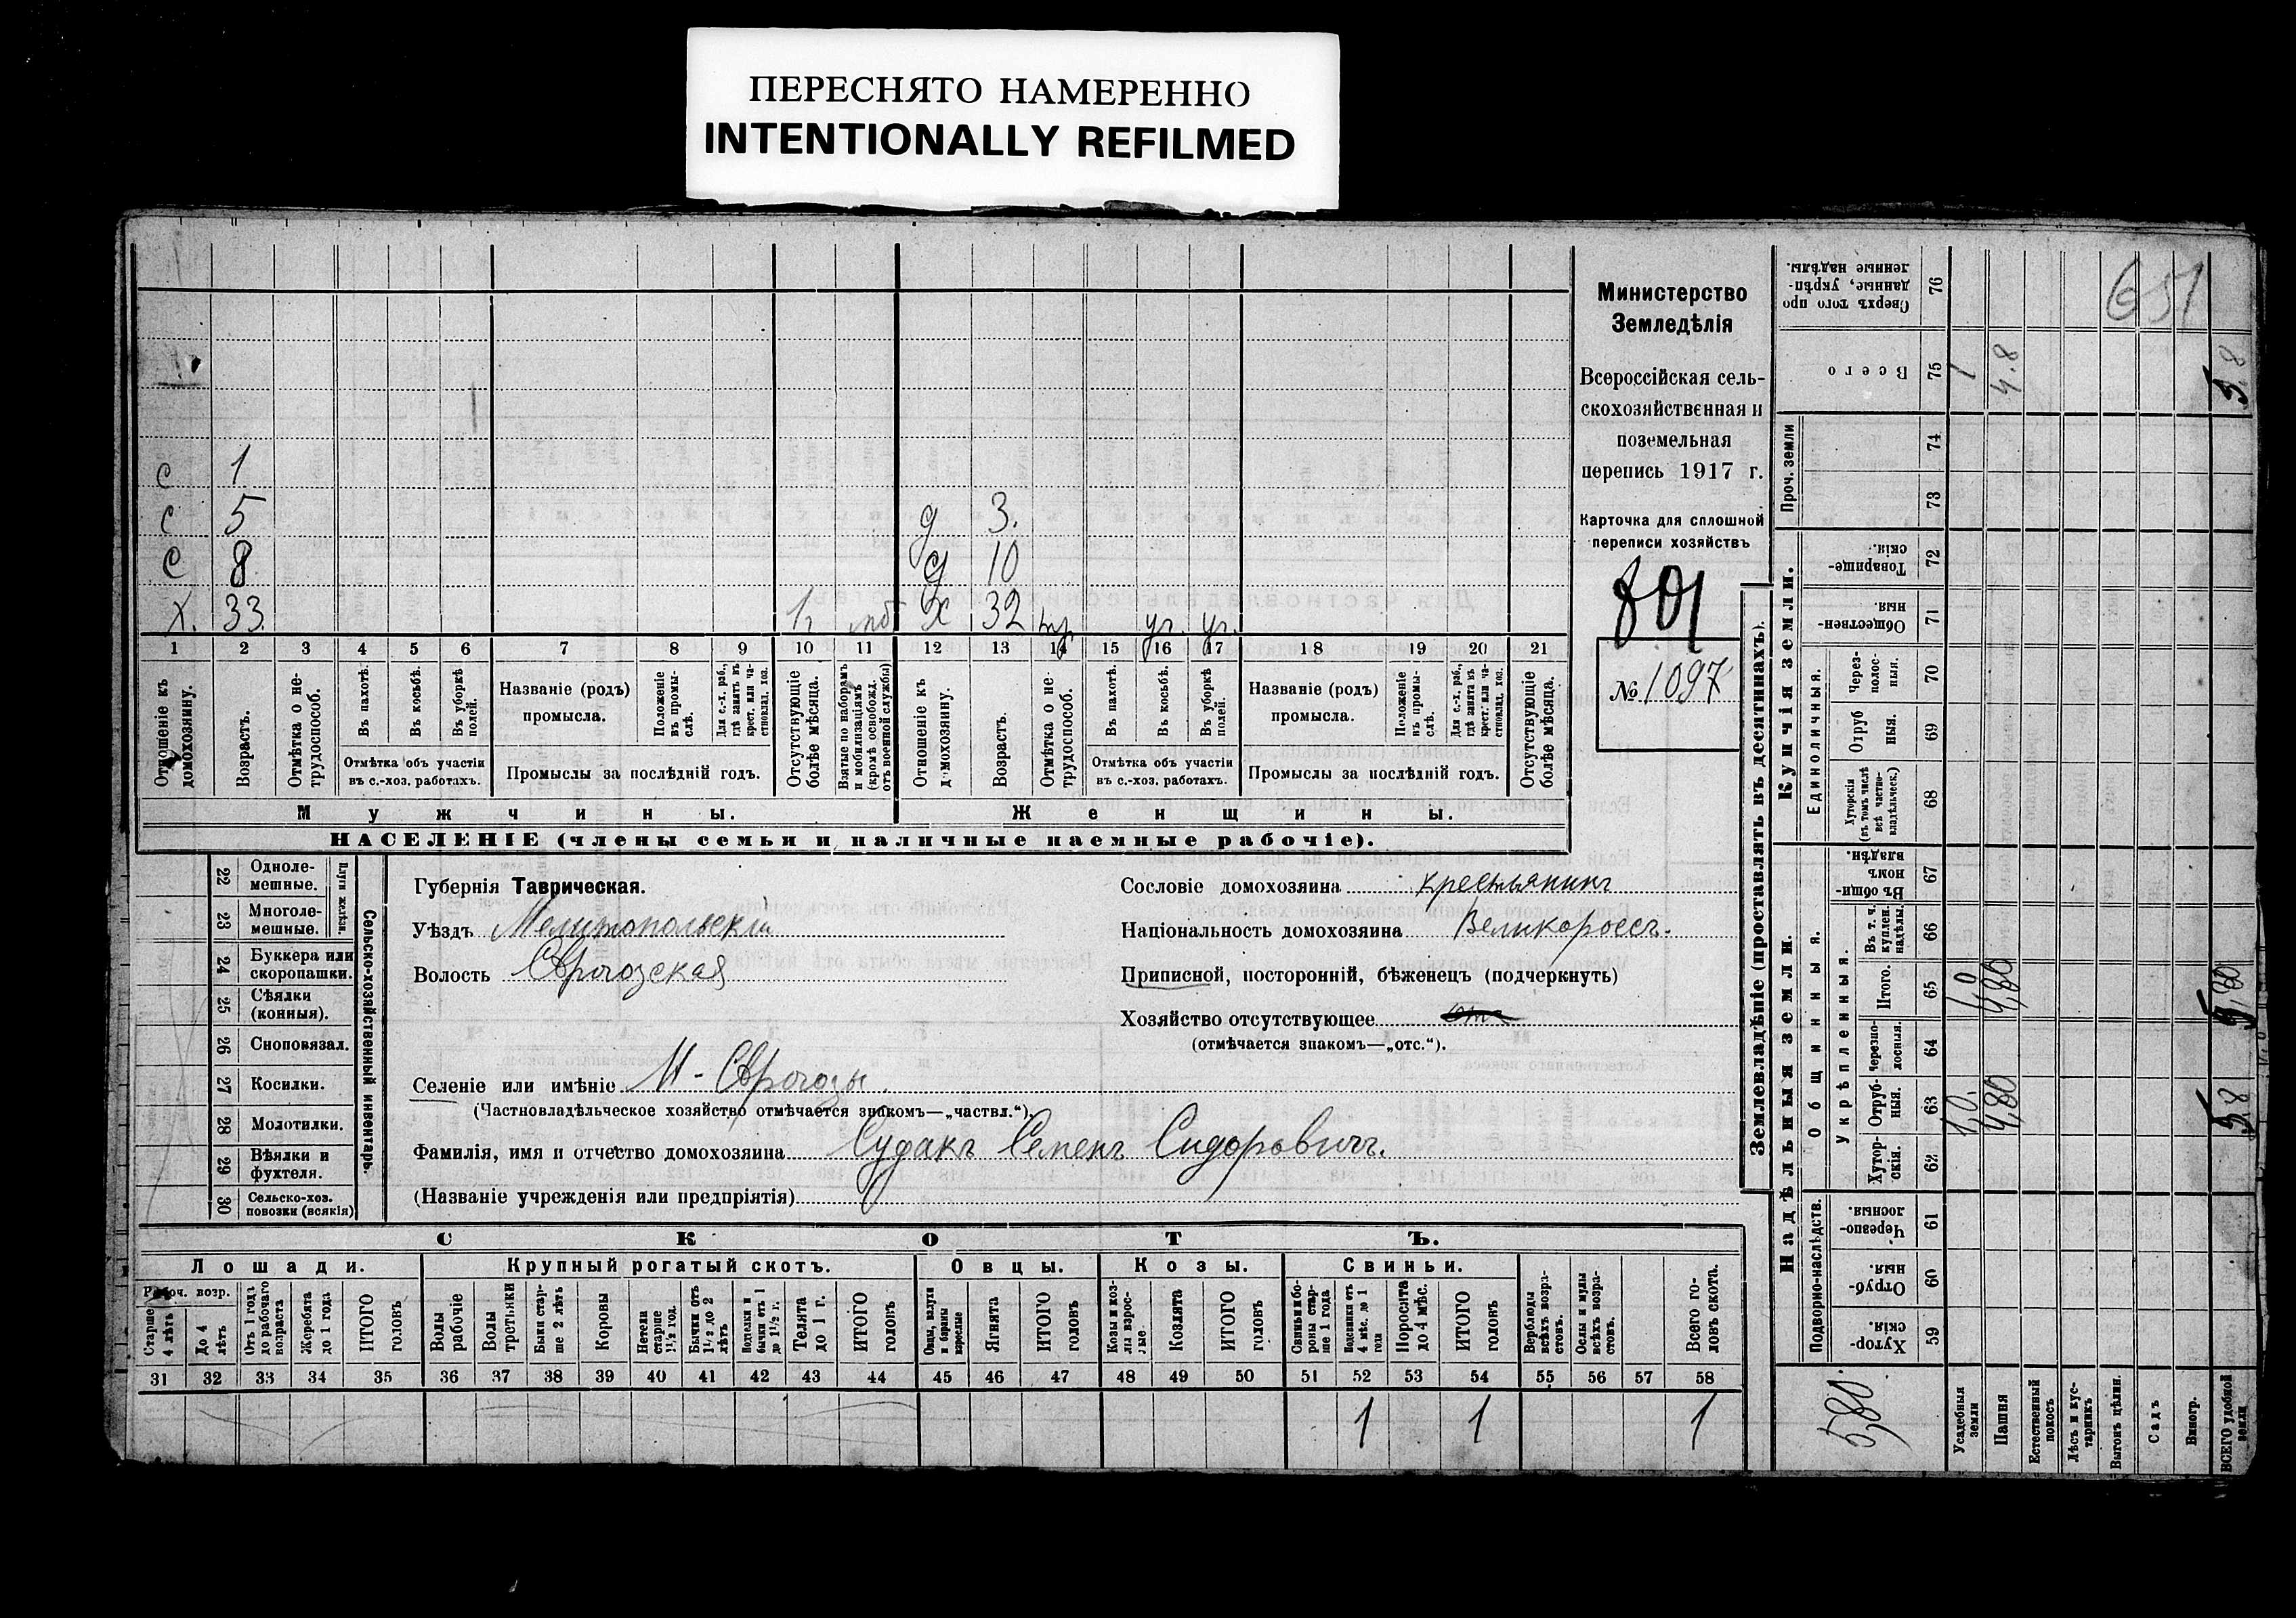 ПЕРЕСНЯТО НАМЕРЕННО
INTENTIONALLY REFILMED
с 1
с 5 д 3.
с 8 д 10
х. 33. 1 моб х 32 уч. уч.
1 2 3 4 5 6 7 8 9 10 11 12 13 14 15 16 17 18 19 20 21
Отношеніе къ домохозяину.
Возрастъ.
Отмѣтка о не-трудоспособ.
Въ пахотѣ.
Въ косьбѣ.
Въ уборкѣ полей.
Отмѣтка объ участіи
въ с.-хоз. работахъ.
Названіе (родъ)
промысла.
Положеніе въ промы-слѣ.
Для с.-х. раб., гдѣ занятъ въ крест. или ча-стновлад. хоз.
Промыслы за послѣдній годъ.
Отсутствующіе болѣе мѣсяца.
Взятые по наборамъ и мобилизаціямъ (кромѣ освобожд. отъ военной службы)
Отношеніе къ домохозяину.
Возрастъ.
Отмѣтка о не-трудоспособ.
Въ пахотѣ.
Въ косьбѣ.
Въ уборкѣ полей.
Отмѣтка объ участіи
въ с.-хоз. работахъ.
Названіе (родъ)
промысла.
Положеніе въ промы-слѣ.
Для с.-х. раб., гдѣ занята въ крест. или ча-стновлад. хоз.
Промыслы за послѣдній годъ.
Отсутствующіе болѣе мѣсяца.
Мужчины.
Женщины.
НАСЕЛЕНІЕ (члены семьи и наличные наемные рабочіе).
Министерство
Земледѣлія
Всероссійская сель-
скохозяйственная и
поземельная
перепись 1917 г.
Карточка для сплошной
переписи хозяйствъ
801
№ 1097
22 Одноле-мешные.
23 Многоле-мешные.
Плуги желѣзн.
24 Буккера или скоропашки.
25 Сѣялки (конныя).
26 Сноповязал.
27 Косилки.
28 Молотилки.
29 Вѣялки и фухтеля.
30 Сельско-хоз. повозки (всякія)
Сельско-хозяйственный инвентарь.
Губернія Таврическая.
Уѣздъ Мелитопольскій
Волость
Сословіе домохозяина крестьянинъ
Національность домохозяина Великороссъ.
Приписной, посторонній, бѣженецъ (подчеркнуть)
Хозяйство отсутствующее отс
(отмѣчается знакомъ—„отс.“).
Селеніе или имѣніе
(Частновладѣльческое хозяйство отмѣчается знакомъ—„частвл.“).
Фамилія, имя и отчество домохозяина Судакъ Семенъ Сидоровичъ.
(Названіе учрежденія или предпріятія)
СКОТЪ.
Лошади.
Крупный рогатый скотъ.
Овцы.
Козы.
Свиньи.
Рабоч. возр.
Старше 4 лѣтъ
До 4 лѣтъ
Отъ 1 года до рабочаго возраста
Жеребята до 1 года
ИТОГО головъ
Волы рабочіе
Волы третьяки
Быки стар-ше 2 лѣтъ
Коровы
Нетели старше 1½ год.
Бычки отъ 1½ до 2 лѣтъ
Телята до 1 г.
ИТОГО головъ
Овцы, валухи и бараны взрослые
Ягнята
ИТОГО головъ
Козы и коз-лы взрос-лые.
Козлята
ИТОГО головъ
Свиньи и бо-ровы стар-ше 1 года
Подсвинки отъ 4 мѣс. до 1 года
Поросята до 4 мѣс.
ИТОГО головъ
Верблюды всѣхъ возра-стовъ.
Ослы и мулы всѣхъ возра-стовъ.
Всего го-ловъ скота.
31 32 33 34 35 36 37 38 39 40 41 42 43 44 45 46 47 48 49 50 51 52 53 54 55 56 57 58
1 1 1
Землевладѣніе (проставлять въ десятинахъ).
Надѣльныя земли.
Купчія земли.
Проч. земли
Подворно-наслѣдств.
Общинныя.
Укрѣпленныя.
Единоличныя.
Хутор-скія. 59
Отруб-ныя. 60
Черезпо-лосныя. 61
Хутор-скія. 62
Отруб-ныя. 63
Черезпо-лосныя. 64
Итого. 65
Въ т. ч. куплен. надѣлы. 66
Въ общин-номъ владѣн. 67
Хуторскія (въ томъ числѣ всѣ частно-владѣльческ.) 68
Отруб ныя. 69
Через-полос-ныя. 70
Обществен-ныя. 71
Товарище-скія. 72
73
74
Всего 75
Сверхъ того про данные, укрѣп-ленные надѣлы. 76
Усадебныя земли 1,0. 1,0 1
Пашня 4,80 4,80 4.8
Естественный покосъ
Лѣсъ и кус-тарникъ
Выгонъ цѣлин.
Садъ
Виногр.
ВСЕГО удобной земли 5,8 5,80 5.8
5,80
651